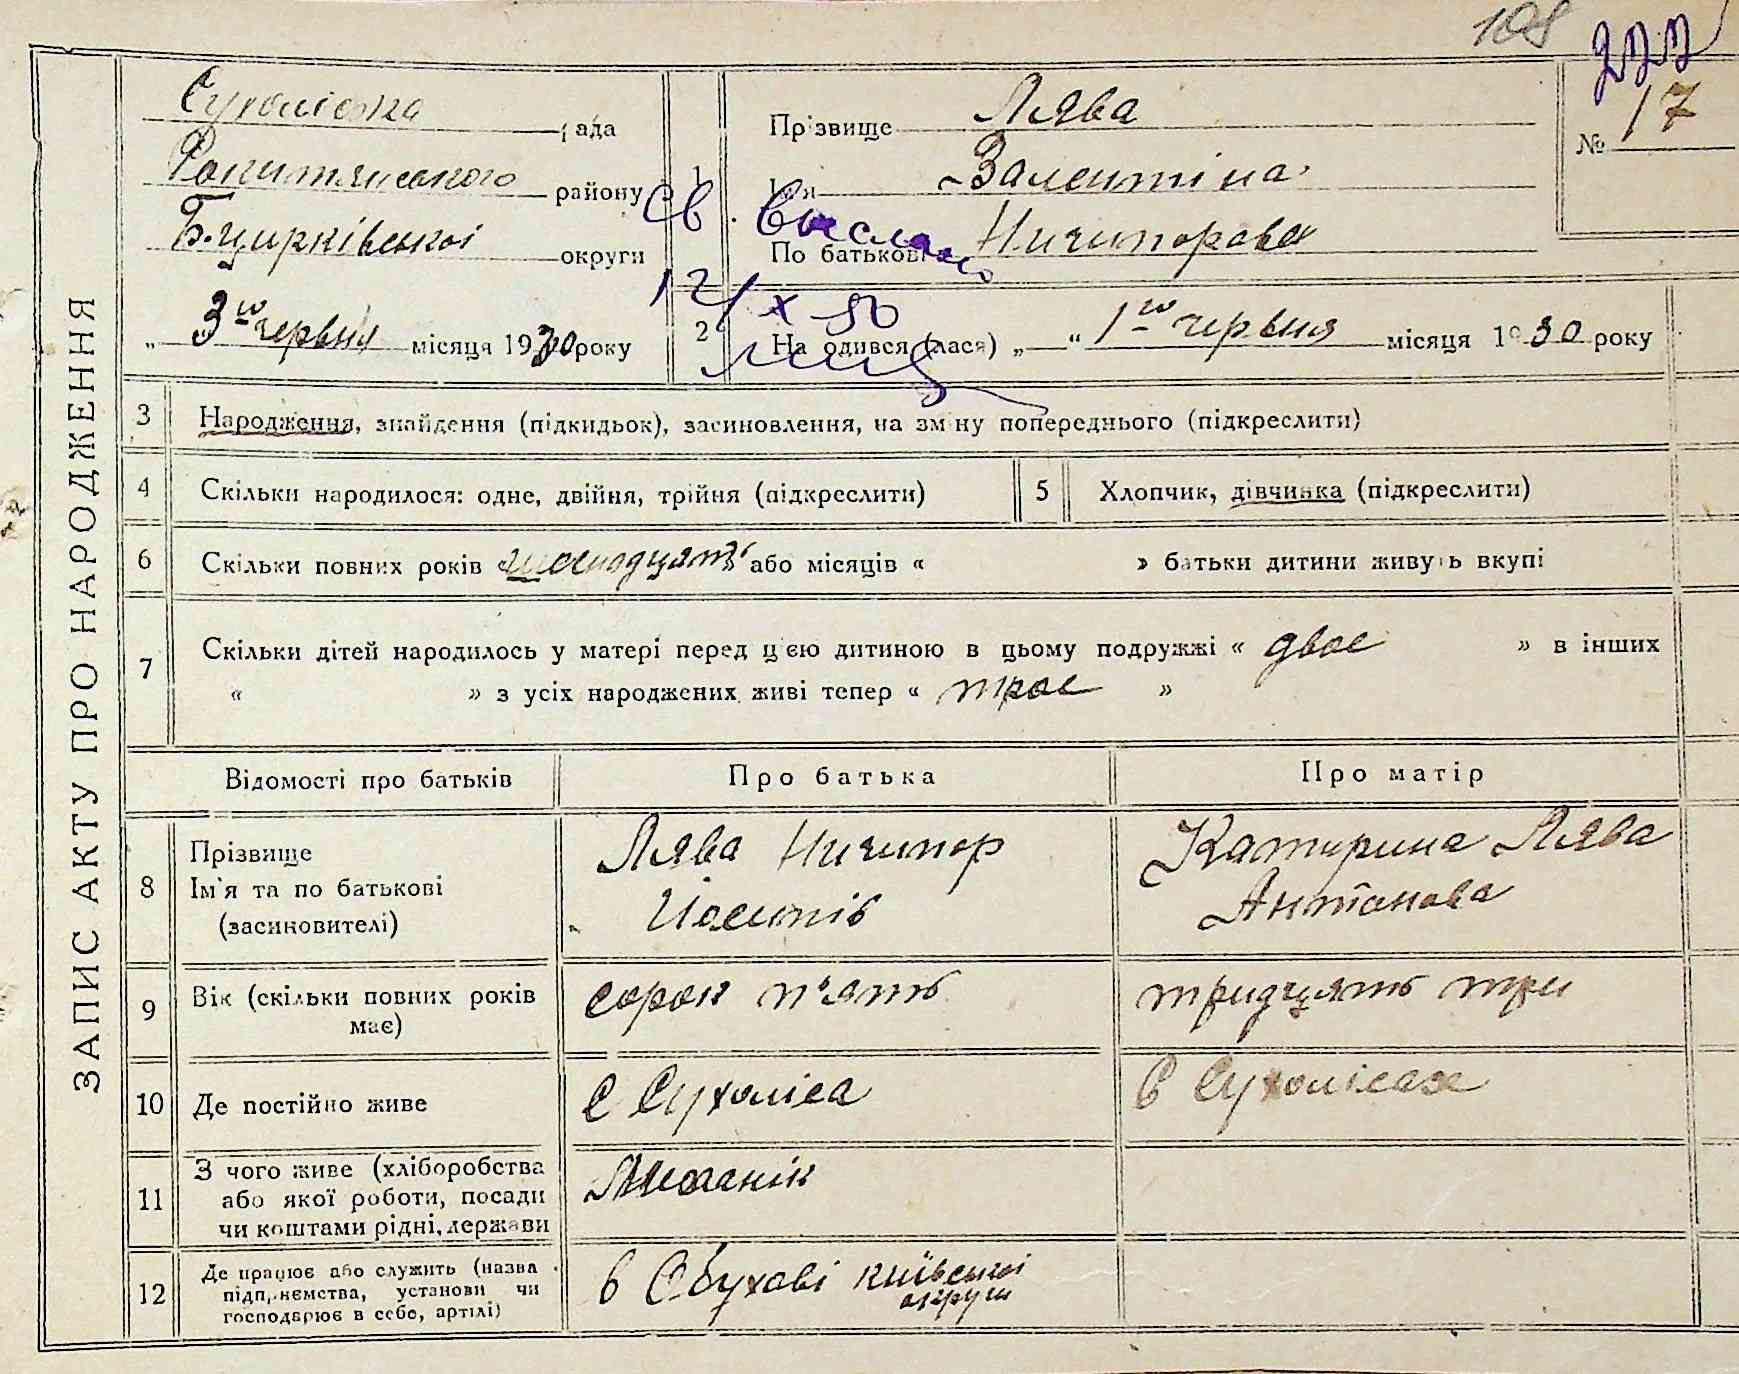 108
222
ЗАПИС АКТУ ПРО НАРОДЖЕННЯ
Сухоліська рада
Рокитянського району
Б.церківської округи
„ 3го червня місяця 1930 року
1
Прізвище Лява
Ім'я Валентіна
По батькові Ничипорова
№ 17
Св. выслано
12/X 50
2 Народився (лася) „ “ 1го червня місяця 1930 року
3 Народження, знайдення (підкидьок), засиновлення, на зміну попереднього (підкреслити)
4 Скільки народилося: одне, двійня, трійня (підкреслити)
5 Хлопчик, дівчинка (підкреслити)
6 Скільки повних років шіснодцять або місяців « » батьки дитини живуть вкупі
7 Скільки дітей народилось у матері перед цією дитиною в цьому подружжі « двоє » в інших
« » з усіх народжених живі тепер « троє »
Відомості про батьків Про батька Про матір
8 Прізвище
Ім'я та по батькові
(засиновителі)
Лява Ничипор
Йосипів
Катирина Лява
Антонова
9 Вік (скільки повних років
має)
сорок п'ять
тридцять три
10 Де постійно живе
С Сухоліса
в Сухолісах
11 З чого живе (хліборобства
або якої роботи, посади
чи коштами рідні, держави
Миханік
12 Де працює або служить (назва
підприємства, установи чи
господарює в себе, артілі)
в Обухові київської
округи